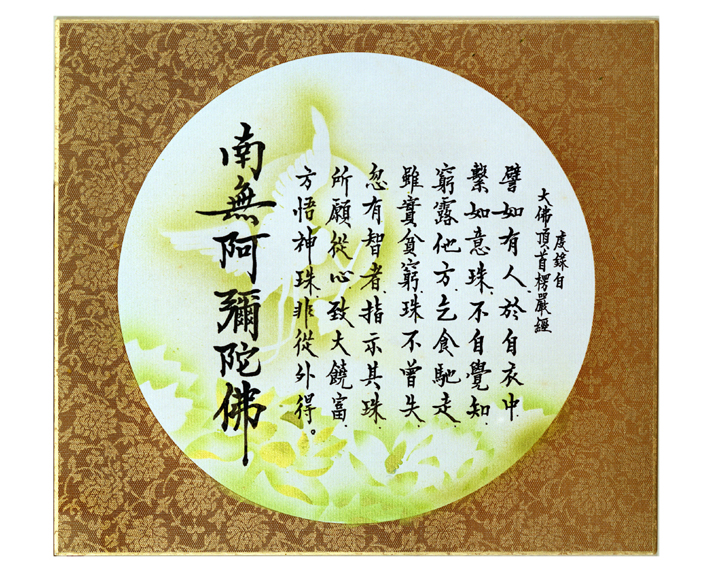 虔錄自
大佛頂首楞嚴經
譬如有人、於自衣中
繫如意珠、不自覺知、
窮露他方、乞食馳走、
雖實貧窮、珠不曾失、
忽有智者、指示其珠、
所願從心、致大饒富、
方悟神珠非從外得。
南無阿彌陀佛